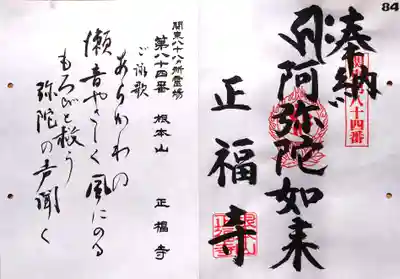 84
奉納
八十四番
阿弥陀如来
正福寺
関東八十八カ所霊場
第八十四番 根本山 正福寺
ご詠歌
あらかわの
瀬音やさしく 風にのる
もろびと救う
弥陀の声聞く